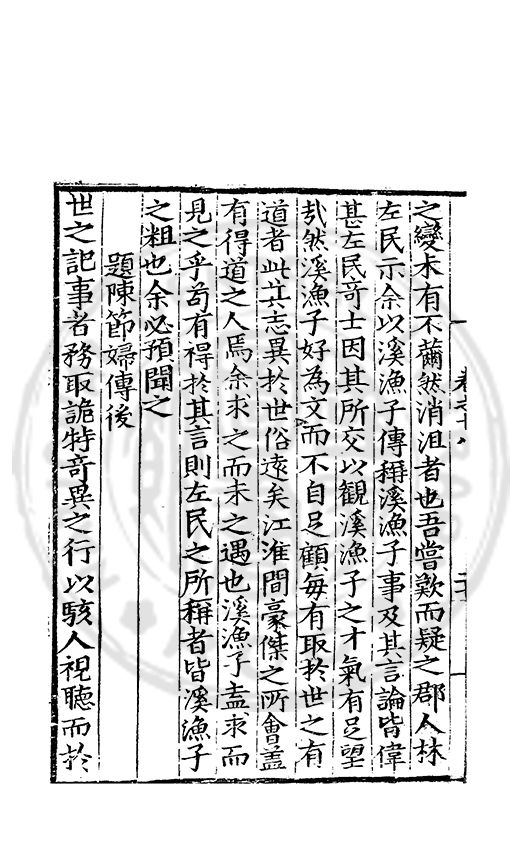 之變未有不薾然消沮者也吾嘗歎而疑之郡人林
左民示余以溪漁子傳稱溪漁子事及其言論皆偉
甚左民竒士因其所交以觀溪漁子之才氣有足望
㢤然溪漁子好為文而不自足顧每有取於世之有
道者此其志異於世俗逺矣江淮間豪傑之所會盖
有得道之人焉余求之而未之遇也溪漁子盍求而
見之乎茍有得於其言則左民之所稱者皆溪漁子
之粗也余必預聞之
題陳節婦傳後
世之記事者務取詭特竒異之行以駭人視聽而於
卷之十八